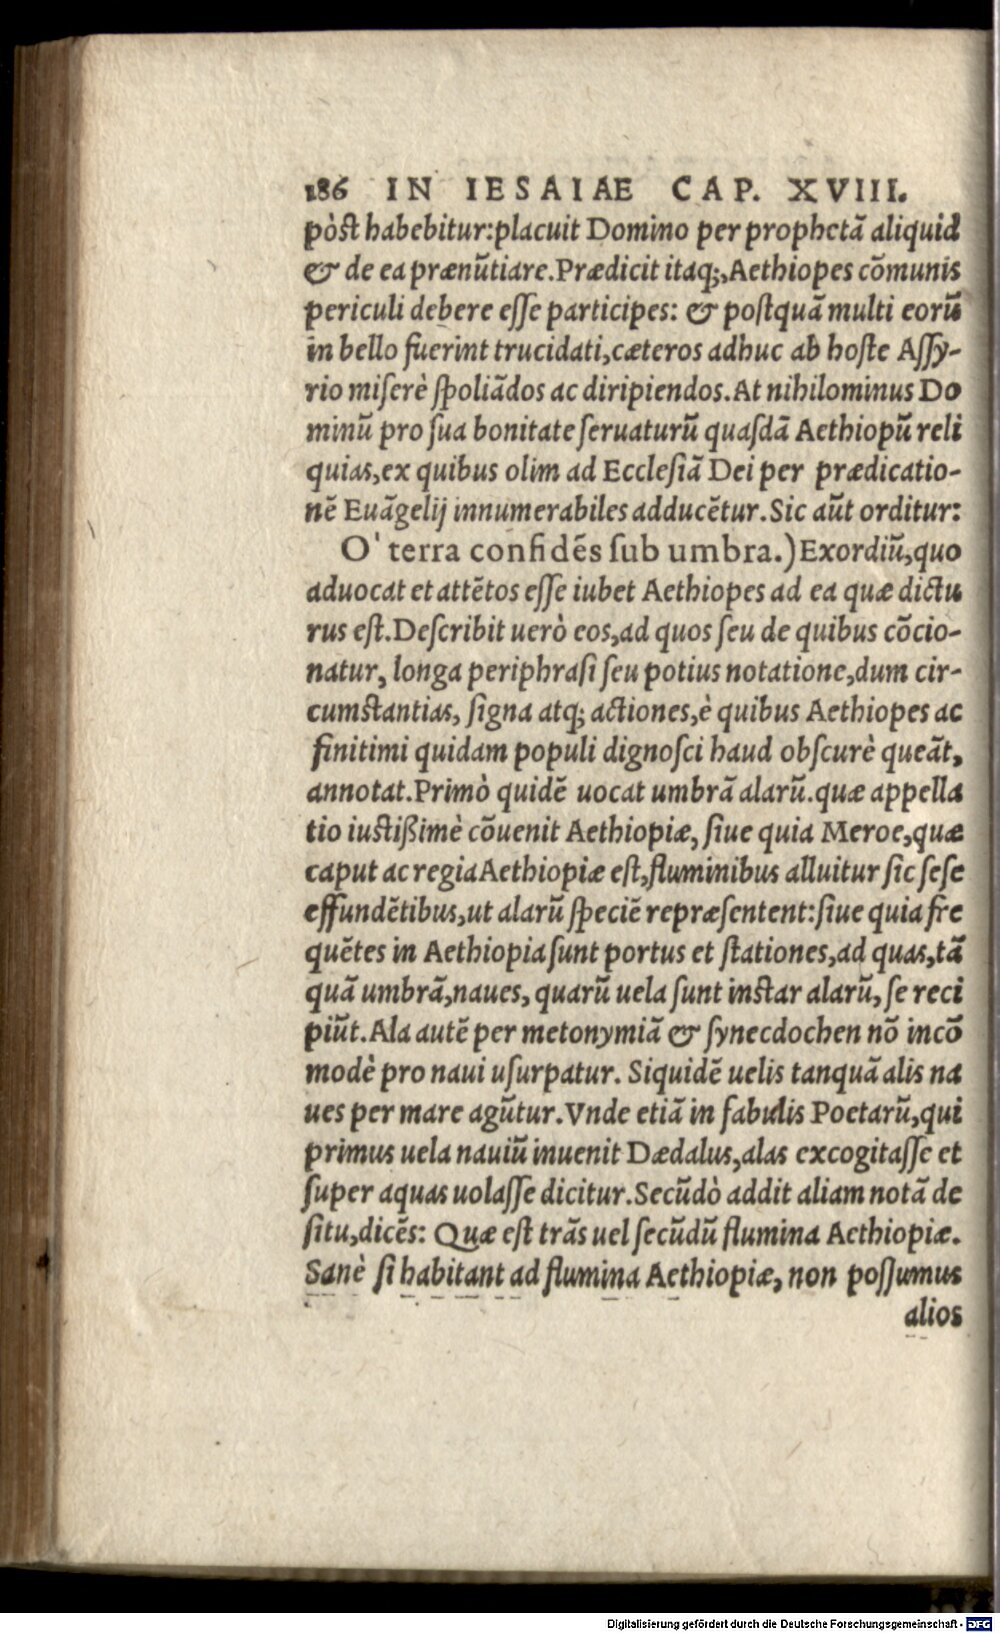 186 IN IESAIAE CAP. XVIII.
pòst habebitur:placuit Domino per prophetā aliquid
& de ea prænūtiare.Prædicit itaq;,Aethiopes cōmunis
periculi debere eſſe participes: & poſtquā multi eorū
in bello fuerint trucidati,cæteros adhuc ab hoſte Aſſy-
rio miſerè ſpoliādos ac diripiendos.At nihilominus Do
minū pro ſua bonitate ſeruaturū quaſdā Aethiopū reli
quias,ex quibus olim ad Eccleſiā Dei per prædicatio-
nē Euāgelij innumerabiles adducētur.Sic aūt orditur:
O' terra confidēs ſub umbra.)Exordiū,quo
aduocat et attētos eſſe iubet Aethiopes ad ea quæ dictu
rus eſt.Deſcribit uerò eos,ad quos ſeu de quibus cōcio-
natur, longa periphraſi ſeu potius notatione,dum cir-
cumſtantias, ſigna atq; actiones,è quibus Aethiopes ac
finitimi quidam populi dignoſci haud obſcurè queāt,
annotat.Primò quidē uocat umbrā alarū.quæ appella
tio iuſtißimè cōuenit Aethiopiæ, ſiue quia Meroe,quæ
caput ac regia Aethiopiæ eſt,fluminibus alluitur ſic ſeſe
effundētibus,ut alarū ſpeciē repræſentent:ſiue quia fre
quētes in Aethiopia ſunt portus et ſtationes,ad quas,tā
quā umbrā,naues, quarū uela ſunt inſtar alarū, ſe reci
piūt.Ala autē per metonymiā & ſynecdochen nō incō
modè pro naui uſurpatur. Siquidē uelis tanquā alis na
ues per mare agūtur.Vnde etiā in fabulis Poetarū,qui
primus uela nauiū inuenit Dædalus,alas excogitaſſe et
ſuper aquas uolaſſe dicitur.Secūdò addit aliam notā de
ſitu,dicēs: Quæ eſt trās uel ſecūdū flumina Aethiopiæ.
Sanè ſi habitant ad flumina Aethiopiæ, non poſſumus
alios
Digitalisierung gefördert durch die Deutsche Forschungsgemeinschaft - DFG